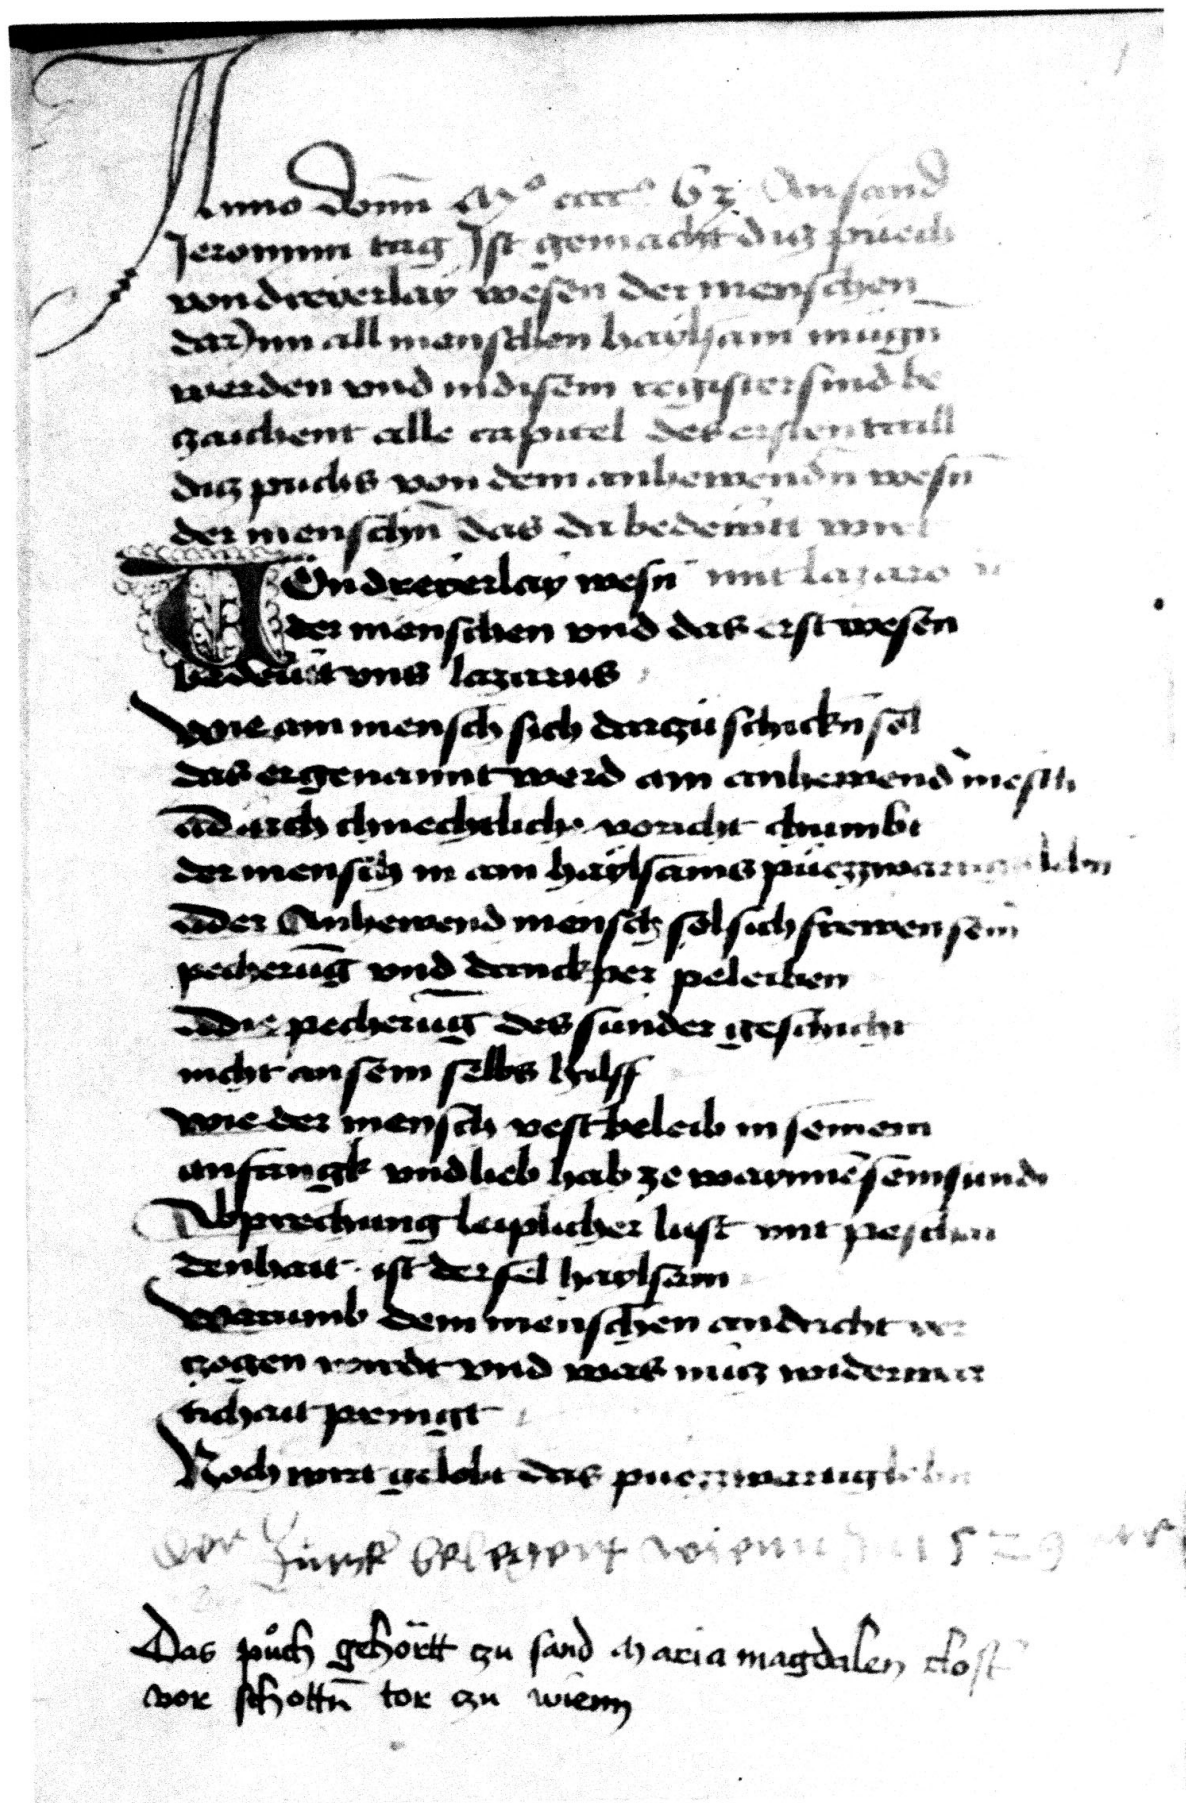 Anno domī Mº ccccº 63 An sand
Jeronimi tag Ist gemacht diz puech
von dreyerlay wesen der menschen
darJnn all menschen haylsam mugn̄
werden vnd in disem register sind be
zaichent alle capitel des ersten taill
diz puchs von dem anhewendn̄ wesn̄
der menschn̄ das da bedewtt wirt
VOn dreyerlay wesn̄ mit lazaro
der menschen vnd das erst wesen
bedeutt vns lazarus
Wie ain mensch sich darzu schickn̄ sol
das er genannt werd ain anhewend mensch
Durch chnechtliche voricht chumbt
der mensch in ain haylsams puezzwertigs lebn
Der Anhewend mensch sol sich frewen seīn
pecherūg vnd danckper peleiben
Die pecherūg des sunder geschicht
nicht an sein selbs hilff
Wie der mensch vest beleib in seinem
anfangk vnd lieb hab ze waynnē sein sund
Abprechung leiplicher lust mit peschai
denhait ist der sel haylsam
Warumb dem menschen andacht ver
zogen wirdt vnd was nucz widerwar
tichait pringt
Noch wirt gelobt das puezzwertig lebn
der Turck belegert wienn 1529
Das půch gehörtt zu sand Maria magdalen clost
vor schottn̄ tor zu wienn